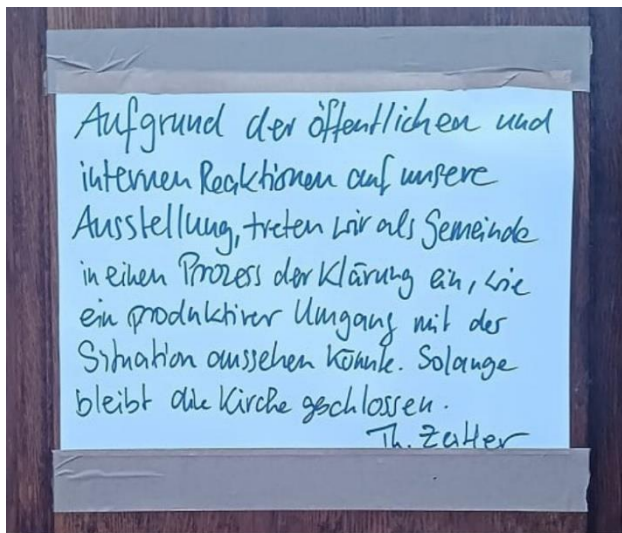 Aufgrund der öffentlichen und
internen Reaktionen auf unsere
Ausstellung, treten wir als Gemeinde
in einen Prozess der Klärung ein, wie
ein produktiver Umgang mit der
Situation aussehen könnte. Solange
bleibt die Kirche geschlossen.
Th. Zeitler